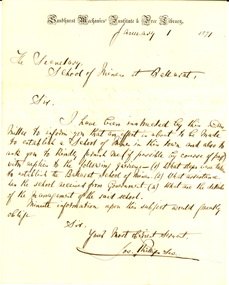 Sandhurst Mechanics' Institute & Free Library,
January 1 1871
The Secretary,
School of Mines at Ballaarat.
Sir.
I have been instructed by the Com
mittee to inform you that an effort is about to be made
to establish a School of Mines in this town and also to
ask you to kindly furnish me (if possible by course of post)
with replies to the following queries:- (1) What steps were taken
to establish the Ballaarat School of Mines. (2) What assistance
has the school received from Government. (3) What are the details
of the management of the said school.
Minute information upon this subject would greatly
oblige
Sir.
Your Most Obedient Servant.